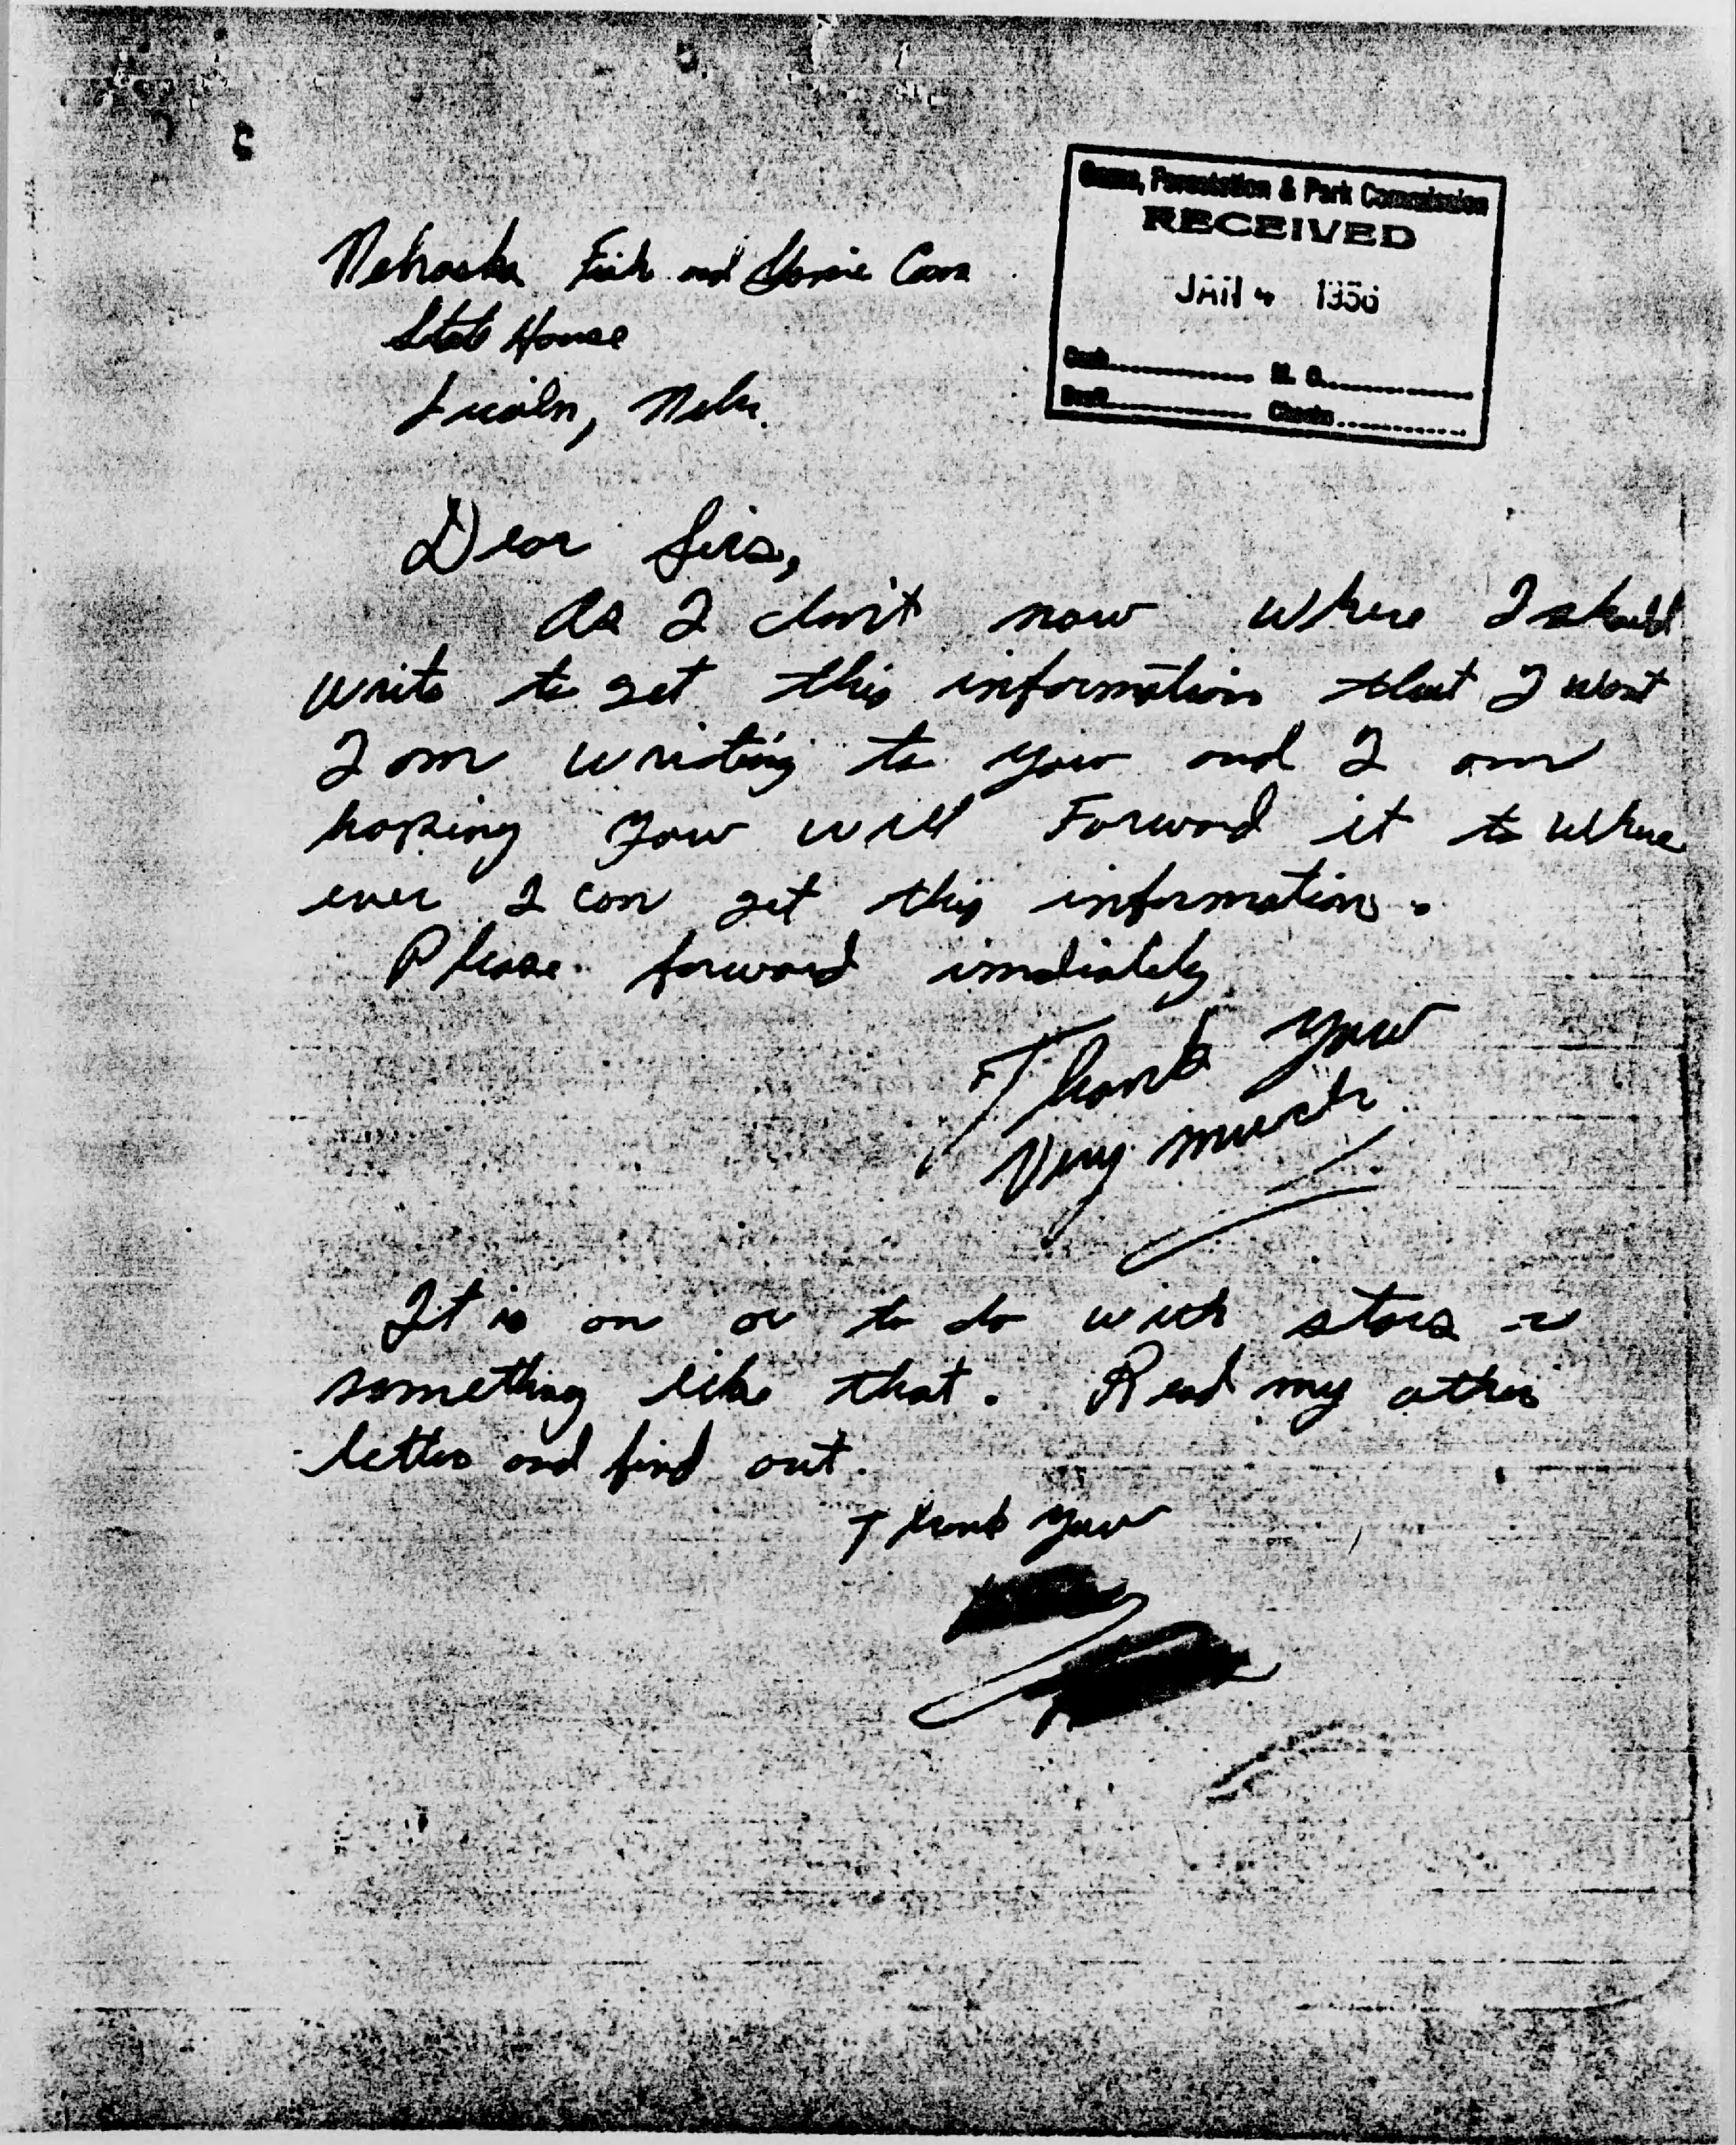 Game, Forestation & Park Commission
RECEIVED
JAN 4
M. O.
Draft
Checks
Nebraska Fish and Game Com
State House
Lincoln, Nebr.
Dear Sirs,
As I don't now where I should
write to get this information that I want
I am writing to you and I am
hoping you will Forward it to where
ever I can get this information.
Please forward imdiately
Thank you
Very much
It is on or to do with stars or
something like that. Read my other
letter and find out.
Thank you